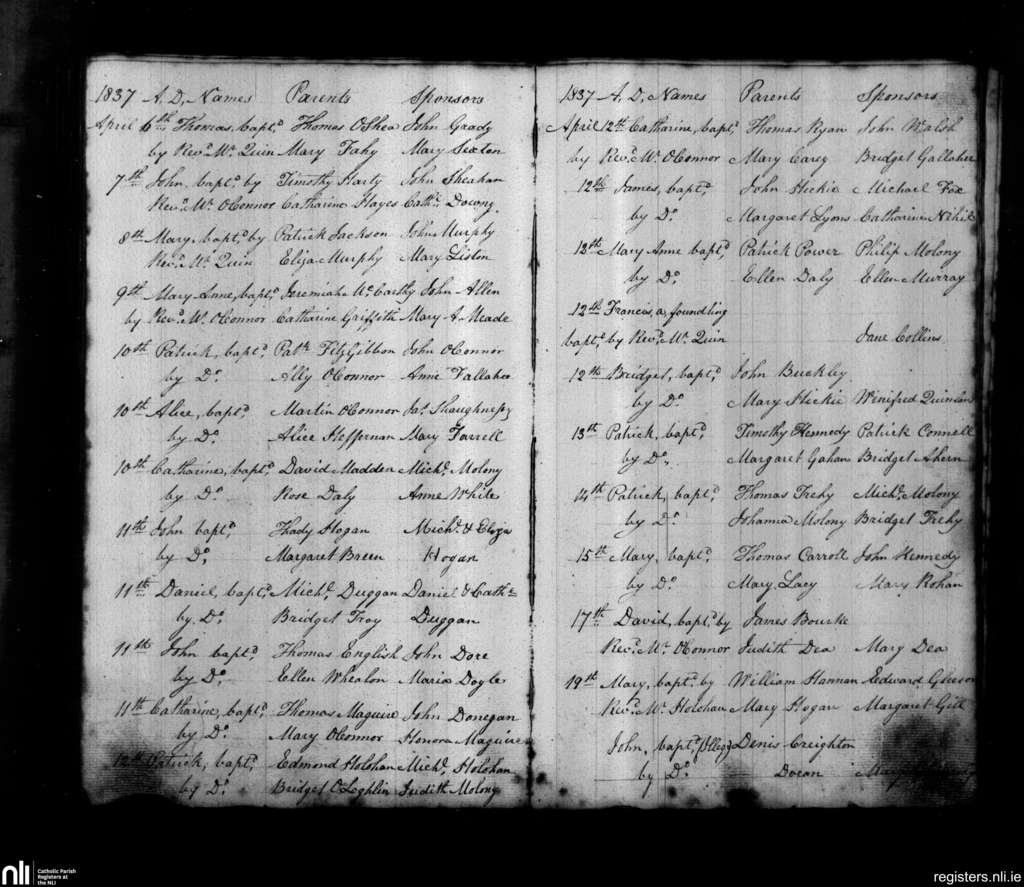 1837 A.D. Names Parents Sponsors
April 6th Thomas, bapt.d Thomas OShea John Grady
by Revd. Mr. Quin Mary Fahy Mary Sexton
7th John, bapt.d by Timothy Harty John Sheahan
Revd. Mr. OConnor Catharine Hayes Cath.e Downy
8th Mary, bapt.d by Patrick Jackson John Murphy
Revd. Mr. Quin Eliza Murphy Mary Liston
9th Mary Anne, bapt.d Jeremiah McCarthy John Allen
by Revd. Mr. OConnor Catharine Griffith Mary A. Meade
10th Patrick, bapt.d Patk. FitzGibbon John OConnor
by Do. Ally OConnor Anne Vallahee
10th Alice, bapt.d Martin OConnor Jas. Shaughnessy
by Do. Alice Heffernan Mary Farrell
10th Catharine, bapt.d David Madden Michl. Molony
by Do. Rose Daly Anne White
11th John bapt.d Thady Hogan Michl. & Eliza
by Do. Margaret Breen Hogan
11th Daniel, bapt.d Michl. Duggan Daniel & Cath.e
by Do. Bridget Troy Duggan
11th John bapt.d Thomas English John Dore
by Do. Ellen Whealon Maria Doyle
11th Catharine, bapt.d Thomas Maguire John Donegan
by Do. Mary OConnor Honora Maguire
12th Patrick, bapt.d Edmond Holohan Michl. Holohan
by Do. Bridget OLoghlin Judith Molony
1837 A.D. Names Parents Sponsors
April 12th Catharine, bapt.d Thomas Ryan John Walsh
by Revd. Mr. OConnor Mary Carey Bridget Gallaher
12th James, bapt.d John Hickie Michael Fox
by Do. Margaret Lyons Catharine Nihil
13th Mary Anne bapt.d Patrick Power Philip Molony
by Do. Ellen Daly Ellen Murray
12th Francis, a foundling
bapt.d by Revd. Mr. Quin Jane Collins
12th Bridget, bapt.d John Buckley
by Do. Mary Hickie Winifred Quinlan
13th Patrick, bapt.d Timothy Kennedy Patrick Connell
by Do. Margaret Gahan Bridget Ahern
14th Patrick, bapt.d Thomas Frehy Michl. Molony
by Do. Johanna Molony Bridget Frehy
15th Mary, bapt.d Thomas Carroll John Kennedy
by Do. Mary Lacy Mary Rohan
17th David, bapt.d by James Bourke
Revd. Mr. OConnor Judith Dea Mary Dea
19th Mary, bapt.d by William Hannan Edward Gleeson
Revd. Mr. Holohan Mary Hogan Margaret Gill
John, bapt.d (Illeg) Denis Creighton
by Do. Doran Mary
nli Catholic Parish
Registers at
the NLI
registers.nli.ie